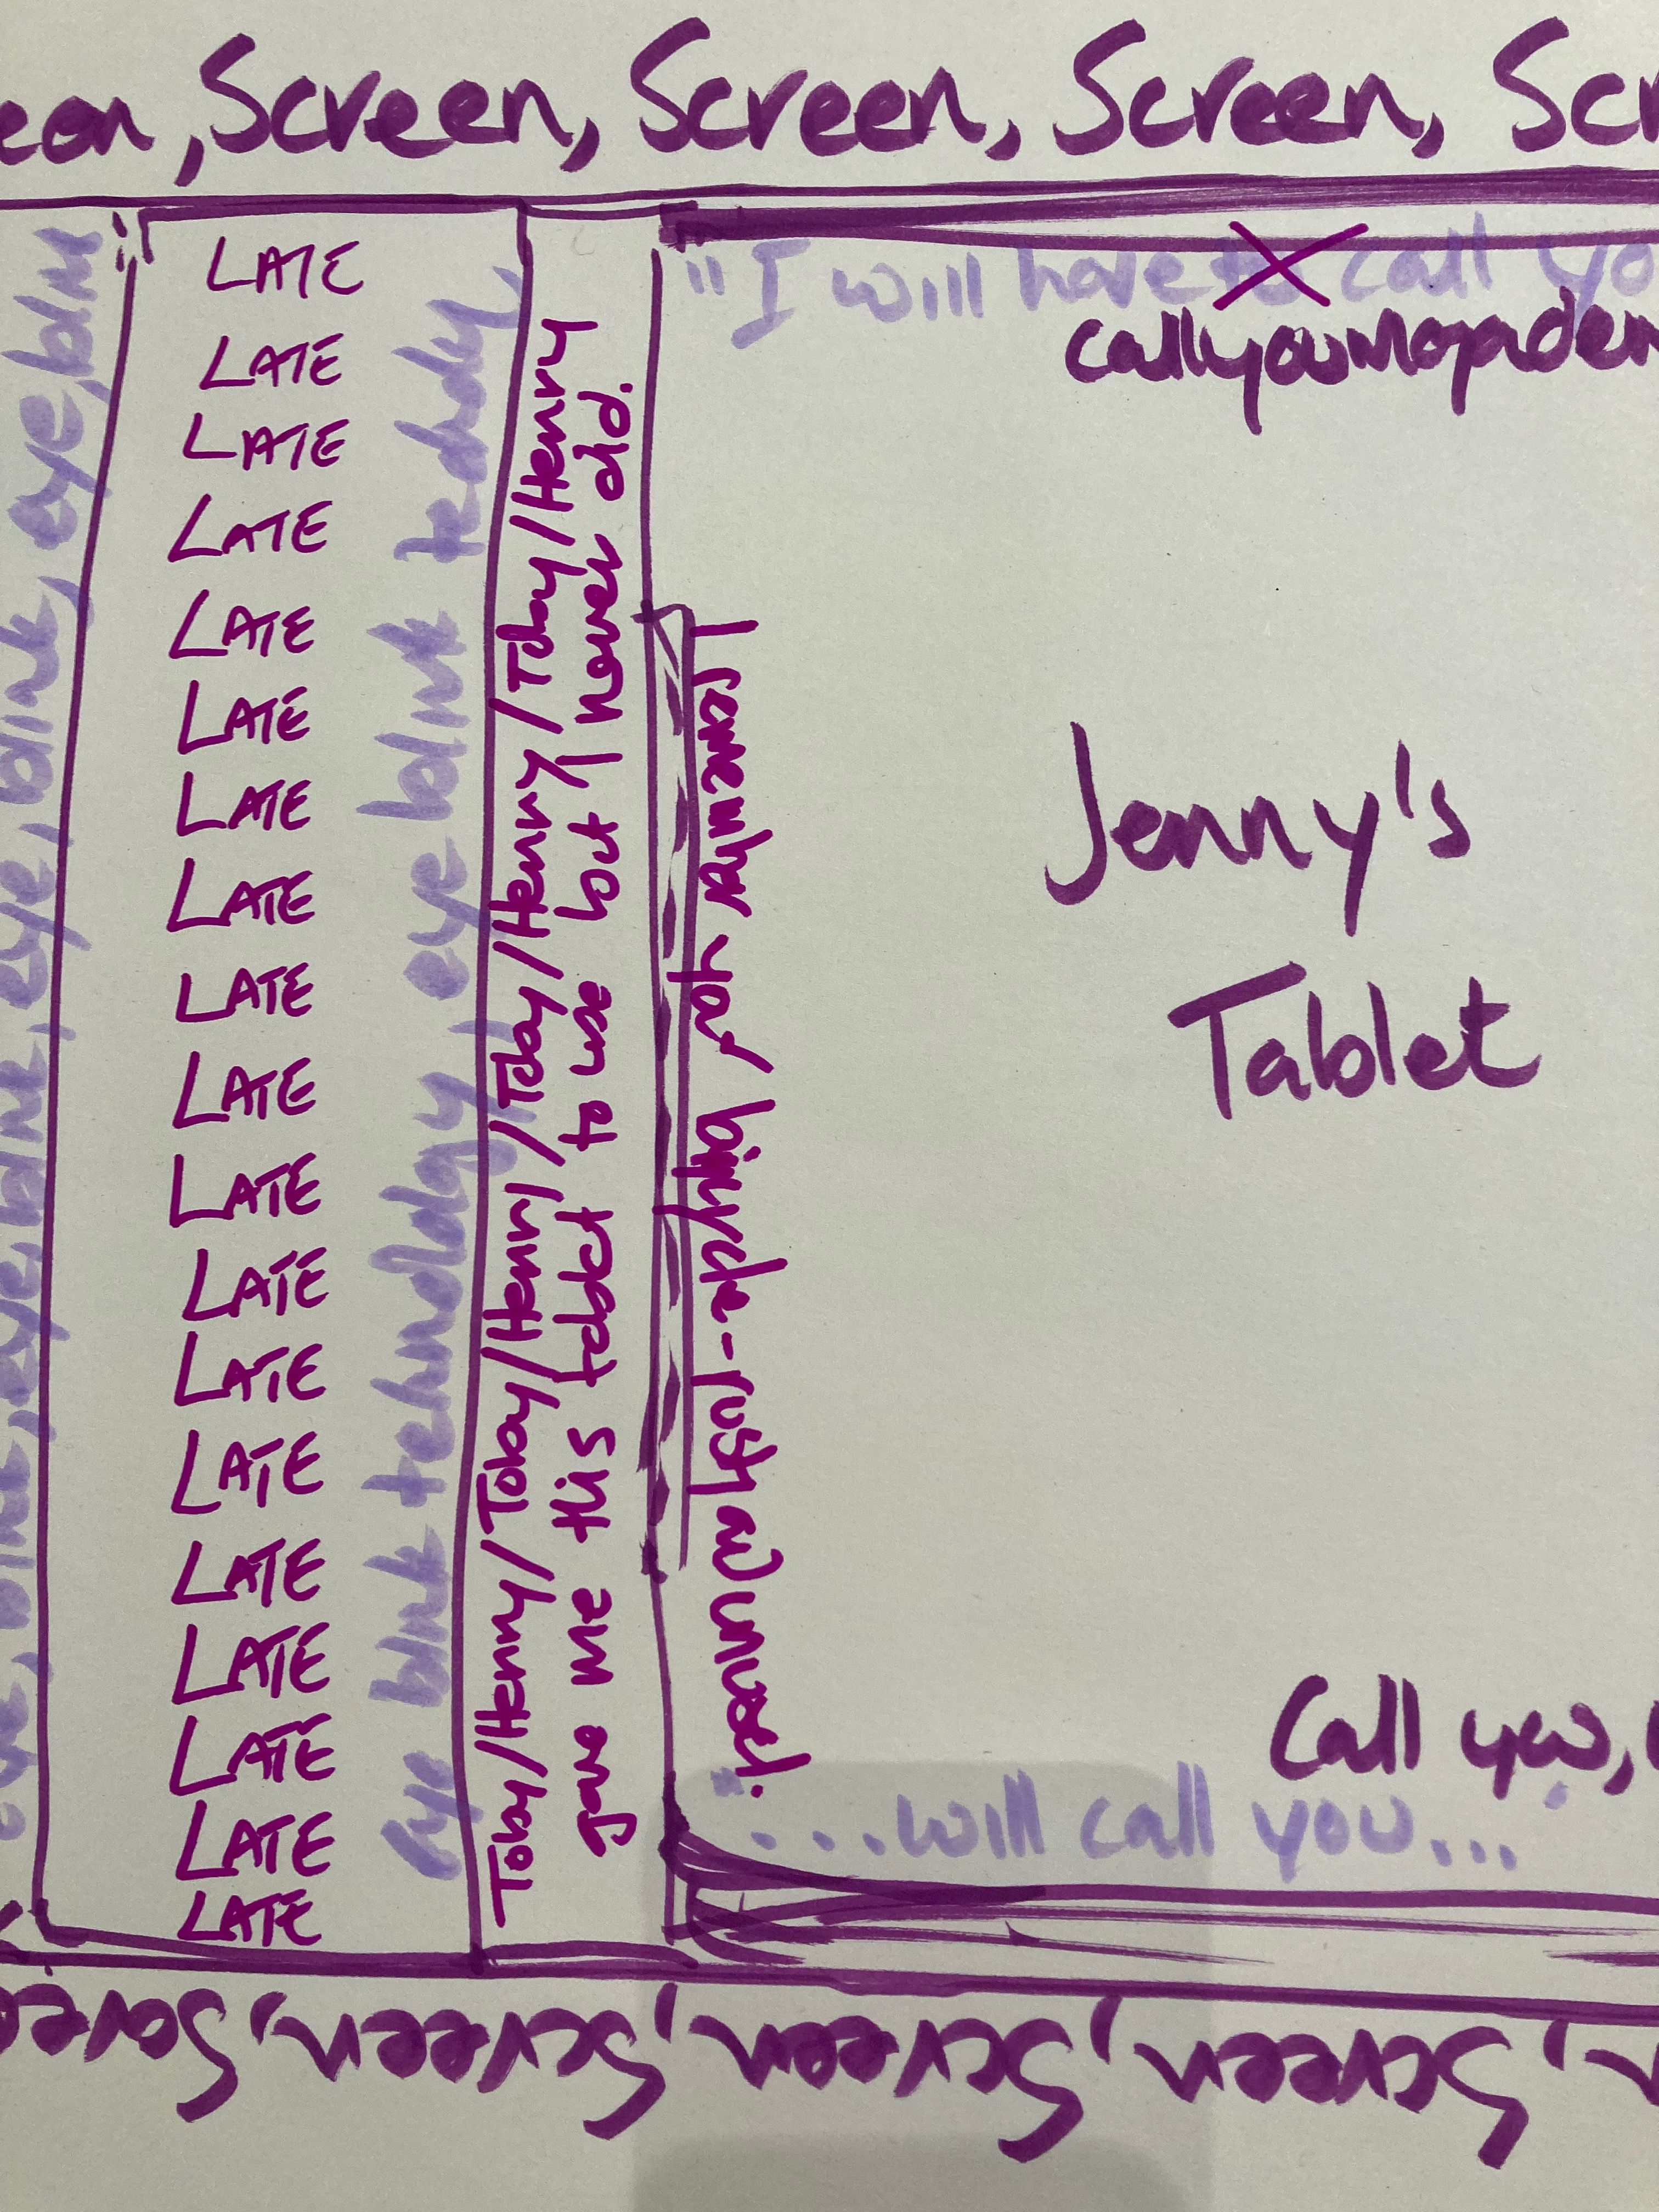 een, Screen, Screen, Screen, Scr
eye, blink, eye, blink, eye, blink, eye, blink
LATE
LATE
LATE
LATE
LATE
LATE
LATE
LATE
LATE
LATE
LATE
LATE
LATE
LATE
LATE
LATE
LATE
LATE
LATE
eye blink technology, eye blink
Toby/Henry/Toby/Henry/Toby/Henry/Toby/Henry
gave me this tablet to use but I never did.
I remember / bicycle - rusty unused.
"I will have to call yo
Jenny's
Tablet
Call you,
"...will call you...
Screen, Screen, Screen, Screen